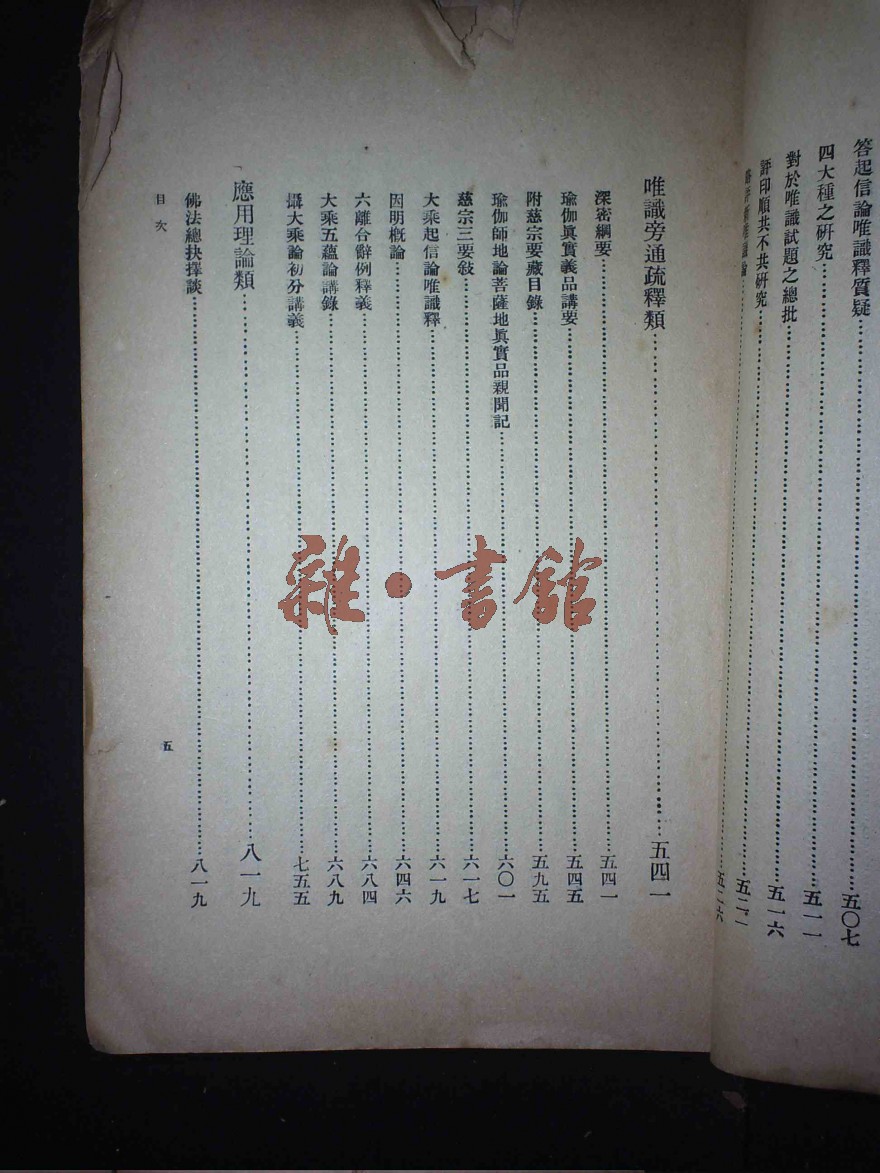 答起信論唯識釋質疑……五〇七
四大種之研究……五一一
對於唯識試題之總批……五一六
評印順共不共研究……五二一
……五二六
唯識旁通疏釋類……五四一
深密綱要……五四一
瑜伽眞實義品講要……五四五
附慈宗要藏目錄……五九五
瑜伽師地論菩薩地眞實品親聞記……六〇一
慈宗三要敍……六一七
大乘起信論唯識釋……六一九
因明概論……六四六
六離合辭例釋義……六八四
大乘五蘊論講錄……六八九
攝大乘論初分講義……七五五
應用理論類……八一九
佛法總抉擇談……八一九
目次
五
雜·書館